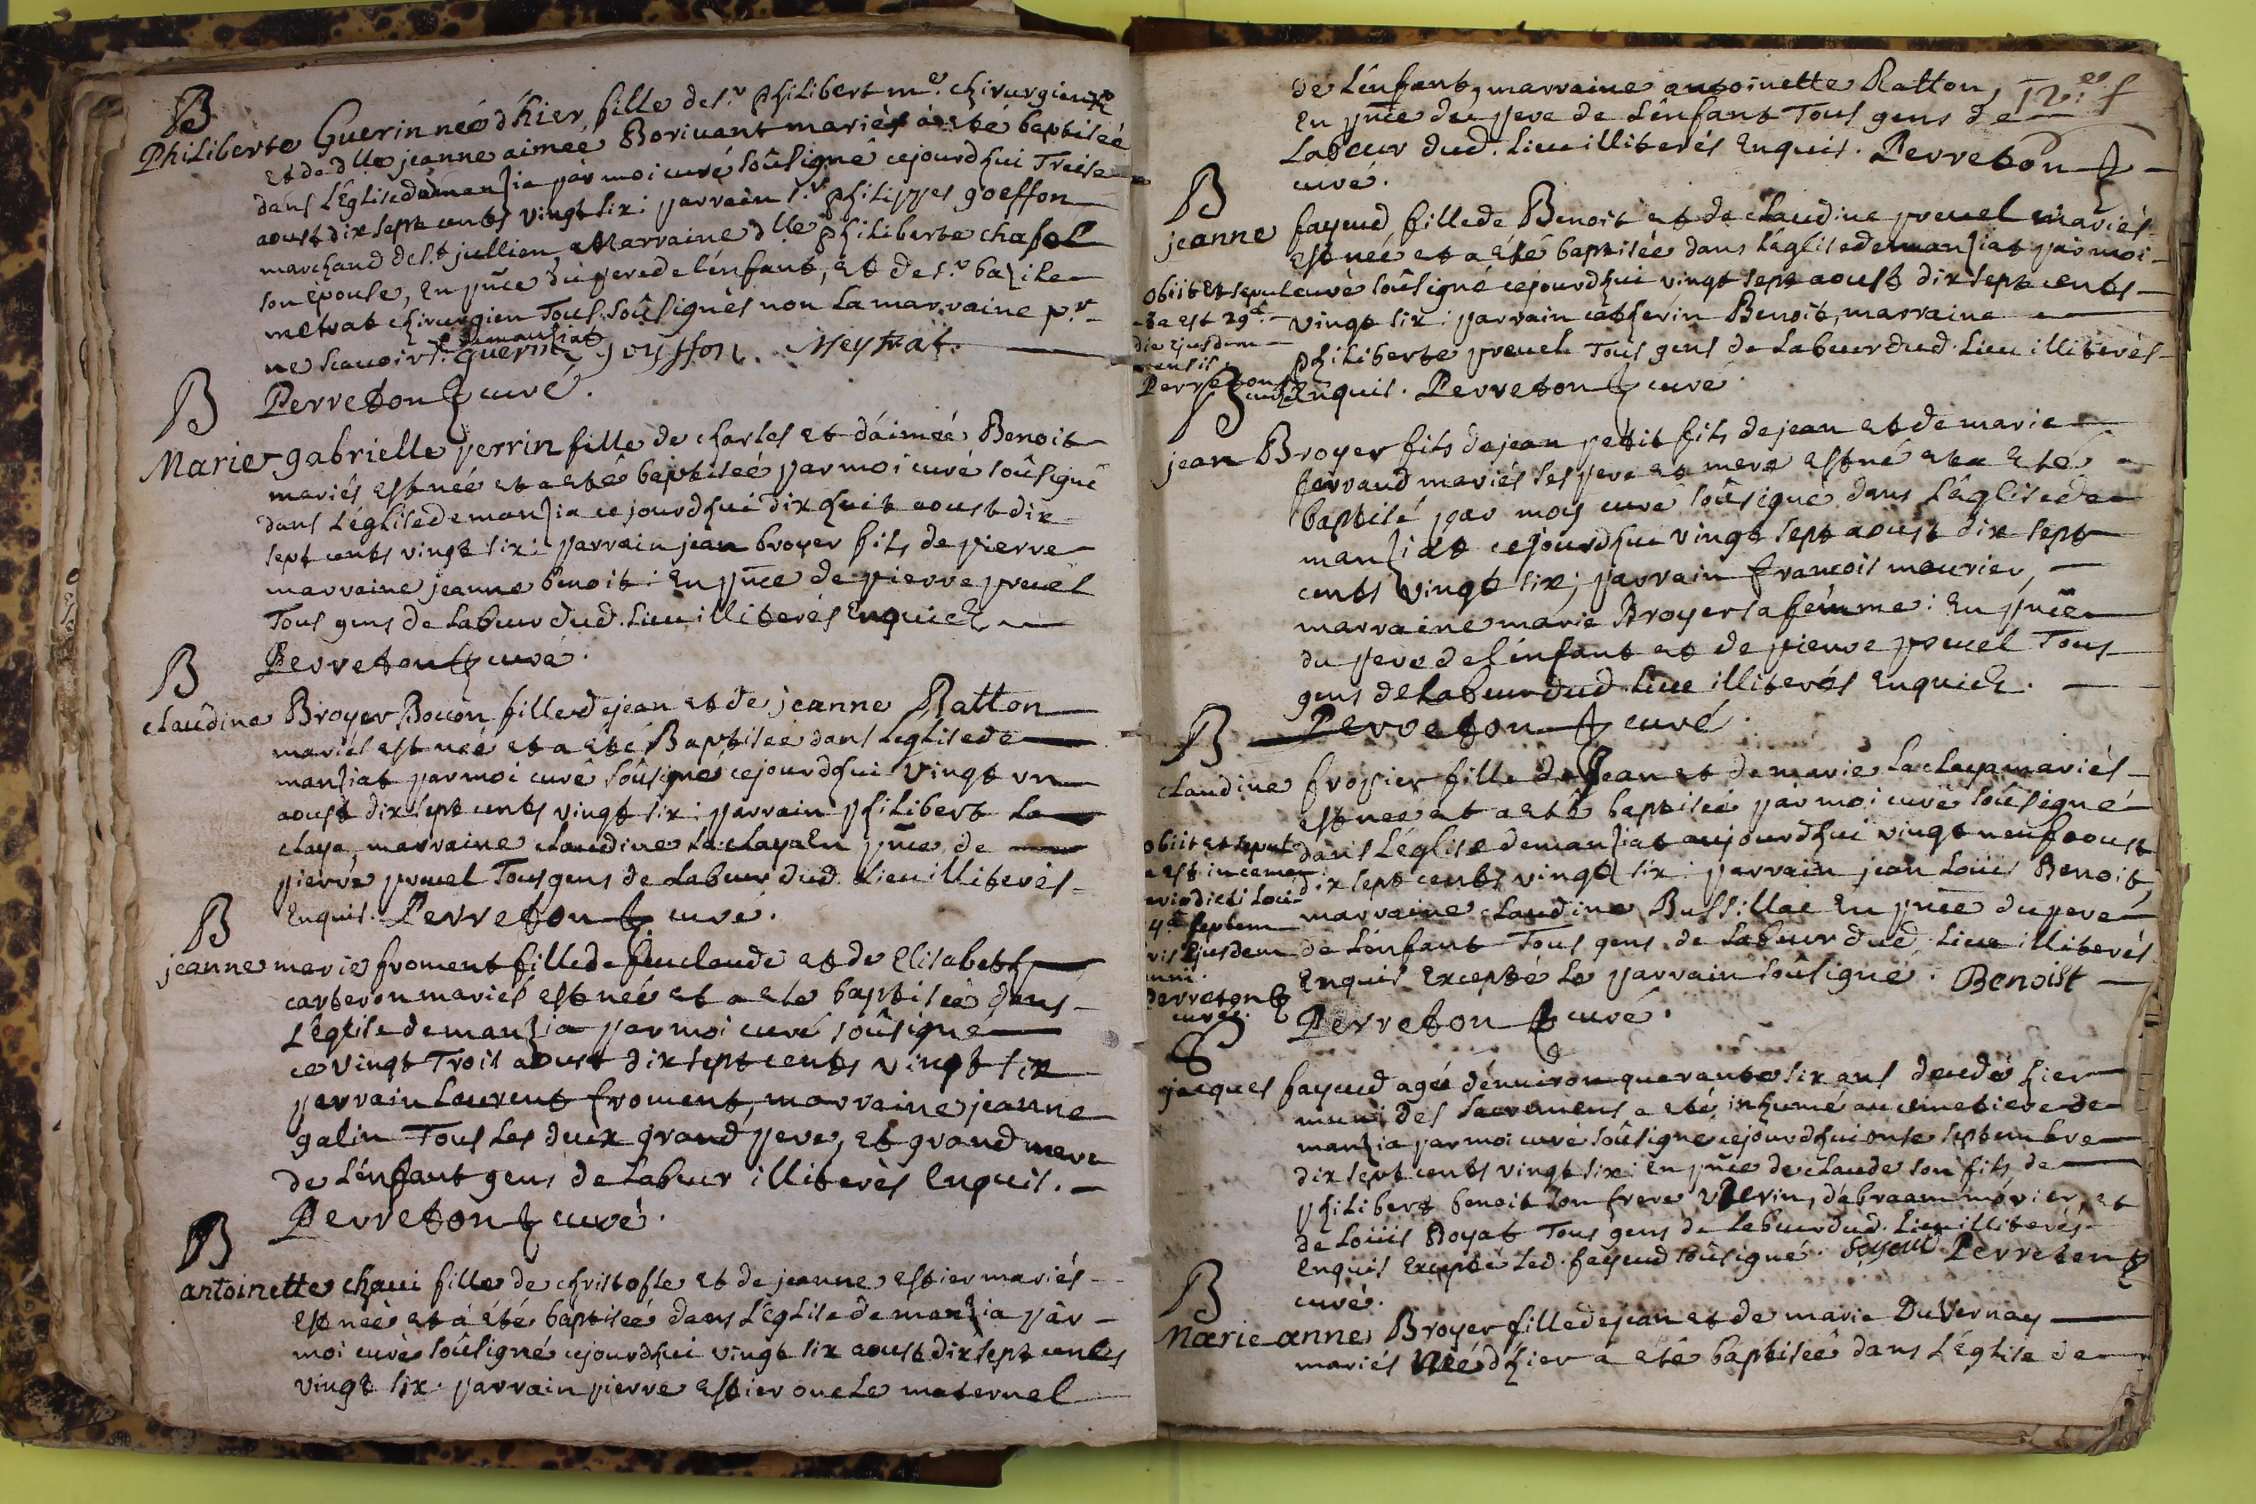 B
Philiberte Guerin neé d'hier, fille de s.r Philibert m.e chirurgien
et de d.lle jeanne aimeé Borivant mariés à eté baptiseé
dans L'église de manzia par moi curé soûsigné cejourdhui Treise
aoust dix sept cents vingt six : parrain s.r philippes goeffon
marchand de s.t jullien, Marraine d.lle philiberte chasol
son épouse, En pñce du pere de l'énfant, et de s.r bazile
metrat chirurgien Tous soûsignés non la marraine p.r
ne scauoir. de manziat Guerin goyffon. Meytrat.
Perreton curé.
B
Marie gabrielle perrin fille de charles et d'aimeé Benoit
mariés est neé et a eté baptiseé par moi curé soûsigné
dans L'église de manzia cejourdhui dix huit aoust dix
sept cents vingt six : parrain jean broyer fils de pierre
marraine jeanne benoit : En pñce de pierre preuel
Tous gens de Labeur dud. Lieu illiterés Enquis
Perreton curé.
B
claudine Broyer Bouon fille de jean et de jeanne Ratton
mariés est neé et a eté Baptiseé dans L'eglise de
manziat par moi curé soûsigné cejourdhui vingt un
aoust dix sept cents vingt six : parrain philibert La
claya, marraine claudine La claya En pñce de
pierre preuel Tous gens de Labeur dud. Lieu illiterés
Enquis. Perreton curé.
B
jeanne marie froment fille de feu claude et de Elisabeth
carteron mariés est neé et a eté baptiseé dans
L'église de manzia par moi curé soûsigné
ce vingt Trois aoust dix sept cents vingt six
parrain Laurent froment, marraine jeanne
galin Tous Les deux grand pere, et grand mere
de L'énfant gens de Labeur illiterés Enquis.
Perreton curé.
B
antoinette chaui fille de christofle et de jeanne estier mariés
est neé et a été baptiseé dans L'église de manzia par
moi curé soûsigné cejourdhui vingt six aoust dix sept cents
vingt six. parrain pierre estier oncle maternel
de L'énfant, marraine antoinette Ratton,
En pñce du pere de L'énfant Tous gens de
Labeur dud. Lieu illiterés Enquis. Perreton
curé.
B
jeanne fayeud, fille de Benoit et de claudine preuel mariés
est neé et a été baptiseé dans L'église de manziat par moi
curé soûsigné cejourdhui vingt sept aoust dix sept cents
vingt six : parrain catherin Benoit, marraine
philiberte preuel Tous gens de Labeur dud. Lieu illiterés
Enquis. Perreton curé.
obiit et sepul
ta est 29.a
die ejusdem
mensis
Perreton
curé
B
jean Broyer fils de jean petit fils de jean et de marie
ferraud mariés ses pere et mere est né et a eté
baptisé par moy curé soûsigné dans L'église de
manziat cejourdhui vingt sept aoust dix sept
cents vingt six ; parrain francois mourier,
marraine marie Broyer sa femme : En pñce
du pere de L'énfant et de pierre preuel Tous
gens de Labeur dud. Lieu illiterés Enquis.
Perreton curé.
B
claudine frosier fille de Jean et de marie La claya mariés
est neé et a eté baptiseé par moi curé soûsigné
dans L'église de manziat aujourdhui vingt neuf aoust
dix sept cents vingt six : parrain jean Loüis Benoit,
marraine claudine Bussillac En pñce du pere
de L'énfant Tous gens de Labeur dud. Lieu illiterés
Enquis Excepté Le parrain soûsigné. Benoist
Perreton curé.
obiit et sepult
a est in ceme
terio dicti Loci
4.a septem
bris Ejusdem
anni
Perreton
curé.
S
jacques fayeud agé d'énuiron quarante six ans decedé hier
muni des sacremens a eté inhumé au cimetiere de
manzia par moi curé soûsigné cejourdhui onse septembre
dix sept cents vingt six : En pñce de claude son fils de
philibert benoit son frere uterin, d'abraam mórier, et
de Loüis Boyat Tous gens de Labeur dud. Lieu illiterés
Enquis Excepté Led. fayeud soûsigné. fayeud Perreton
curé.
B
Marie anne Broyer fille de jean et de marie DuVernay
mariés Neé d'hier a eté baptiseé dans L'église de